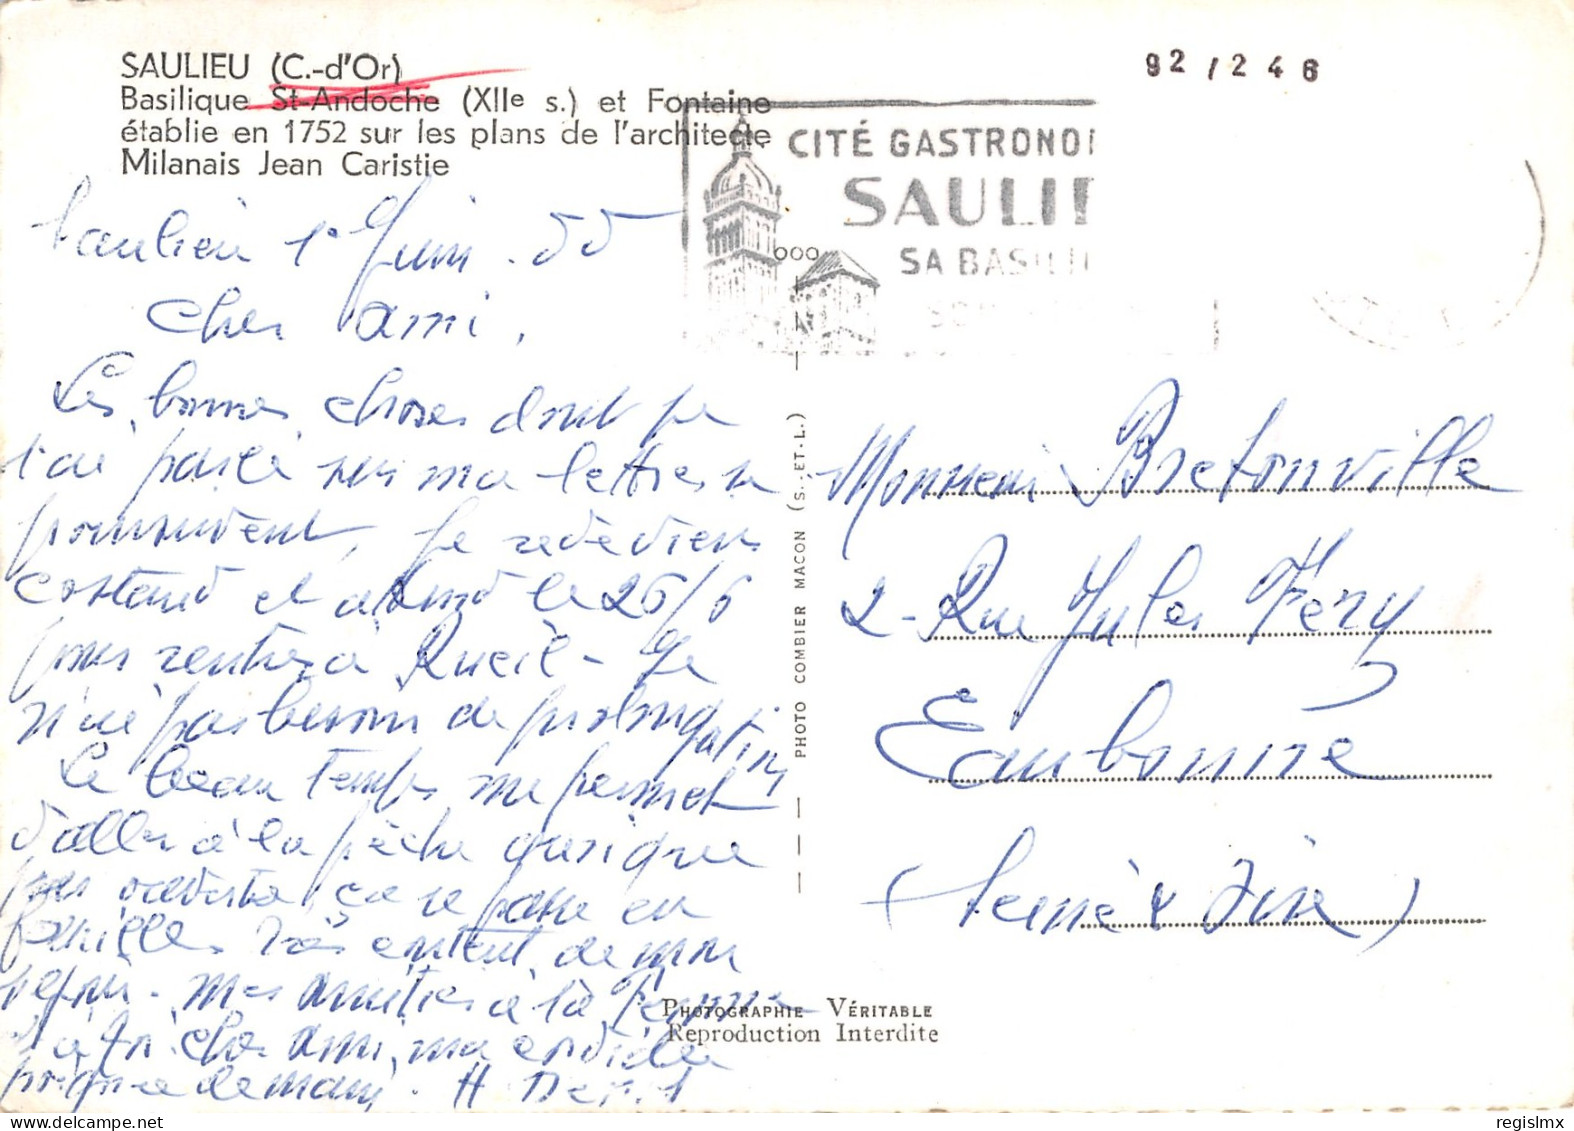 SAULIEU (C.-d'Or)
Basilique St-Andoche (XIIe s.) et Fontaine
établie en 1752 sur les plans de l'architecte
Milanais Jean Caristie
92/246
CITÉ GASTRONO
SAULI
SA BASILI
Saulieu 1° Juin . 55
Cher ami,
Les bonnes choses dont je
t'ai parlé sur ma lettre se
poursuivent, je redeviens
costaud et le 26/6
pour rentrer à Rueil - Je
n'ai pas besoin de prolongation
Le beau temps me permet
d'aller à la pêche quoique
pas ça se passe en
famille très content de mon
séjour - Mes amitiés à ta femme
à toi cher ami, ma cordiale
poignée de main. H
PHOTO COMBIER MACON (S.-ET-L.)
Monsieur Bretonville
2 - Rue Jules Ferry
Eaubonne
(Seine & Oise)
PHOTOGRAPHIE VÉRITABLE
Reproduction Interdite
regislmx
delcampe.net